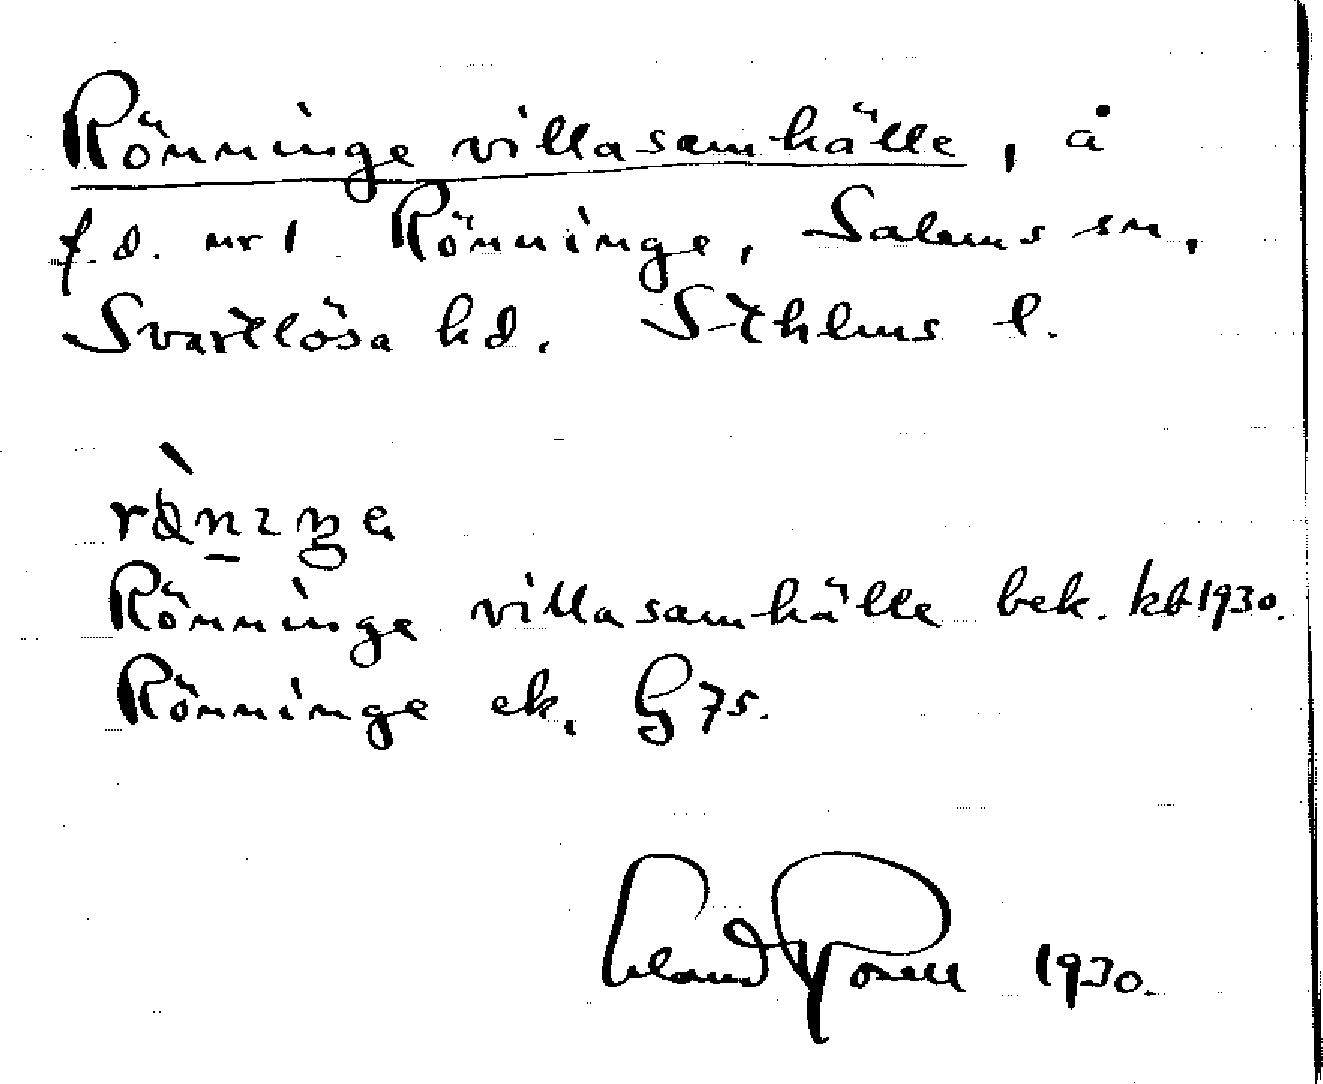 Rönninge villasamhälle, å
f.d. nr 1 Rönninge, Salems sn,
Svartlösa hd. Sthlms l.
Rönninge villasamhälle bek. kb 1930.
Rönninge ek. G 75.
Erland Rosell 1930.